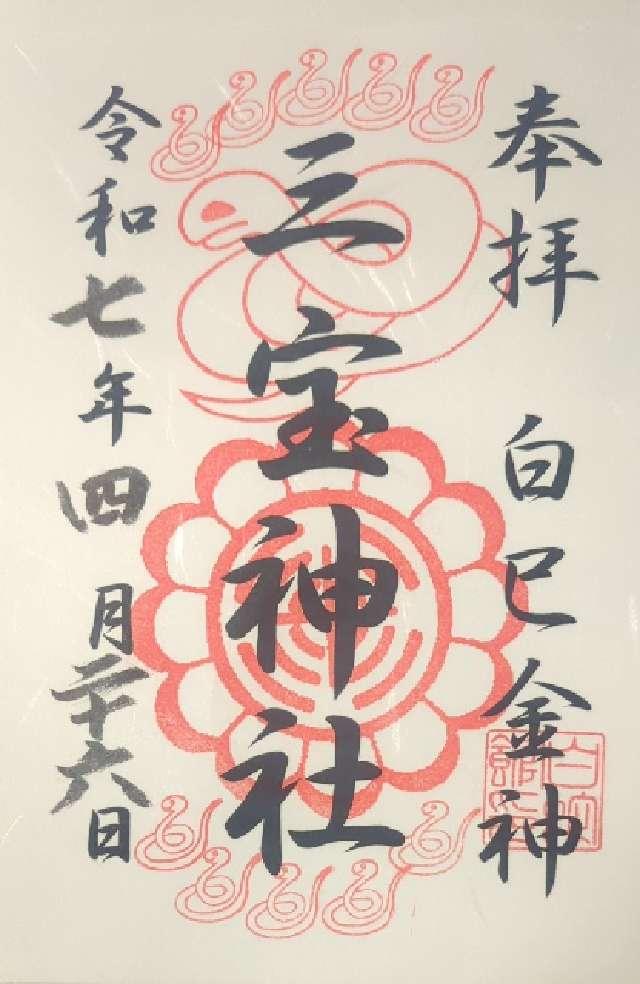 奉拝 白巳金神
三宝神社
令和七年四月二十六日